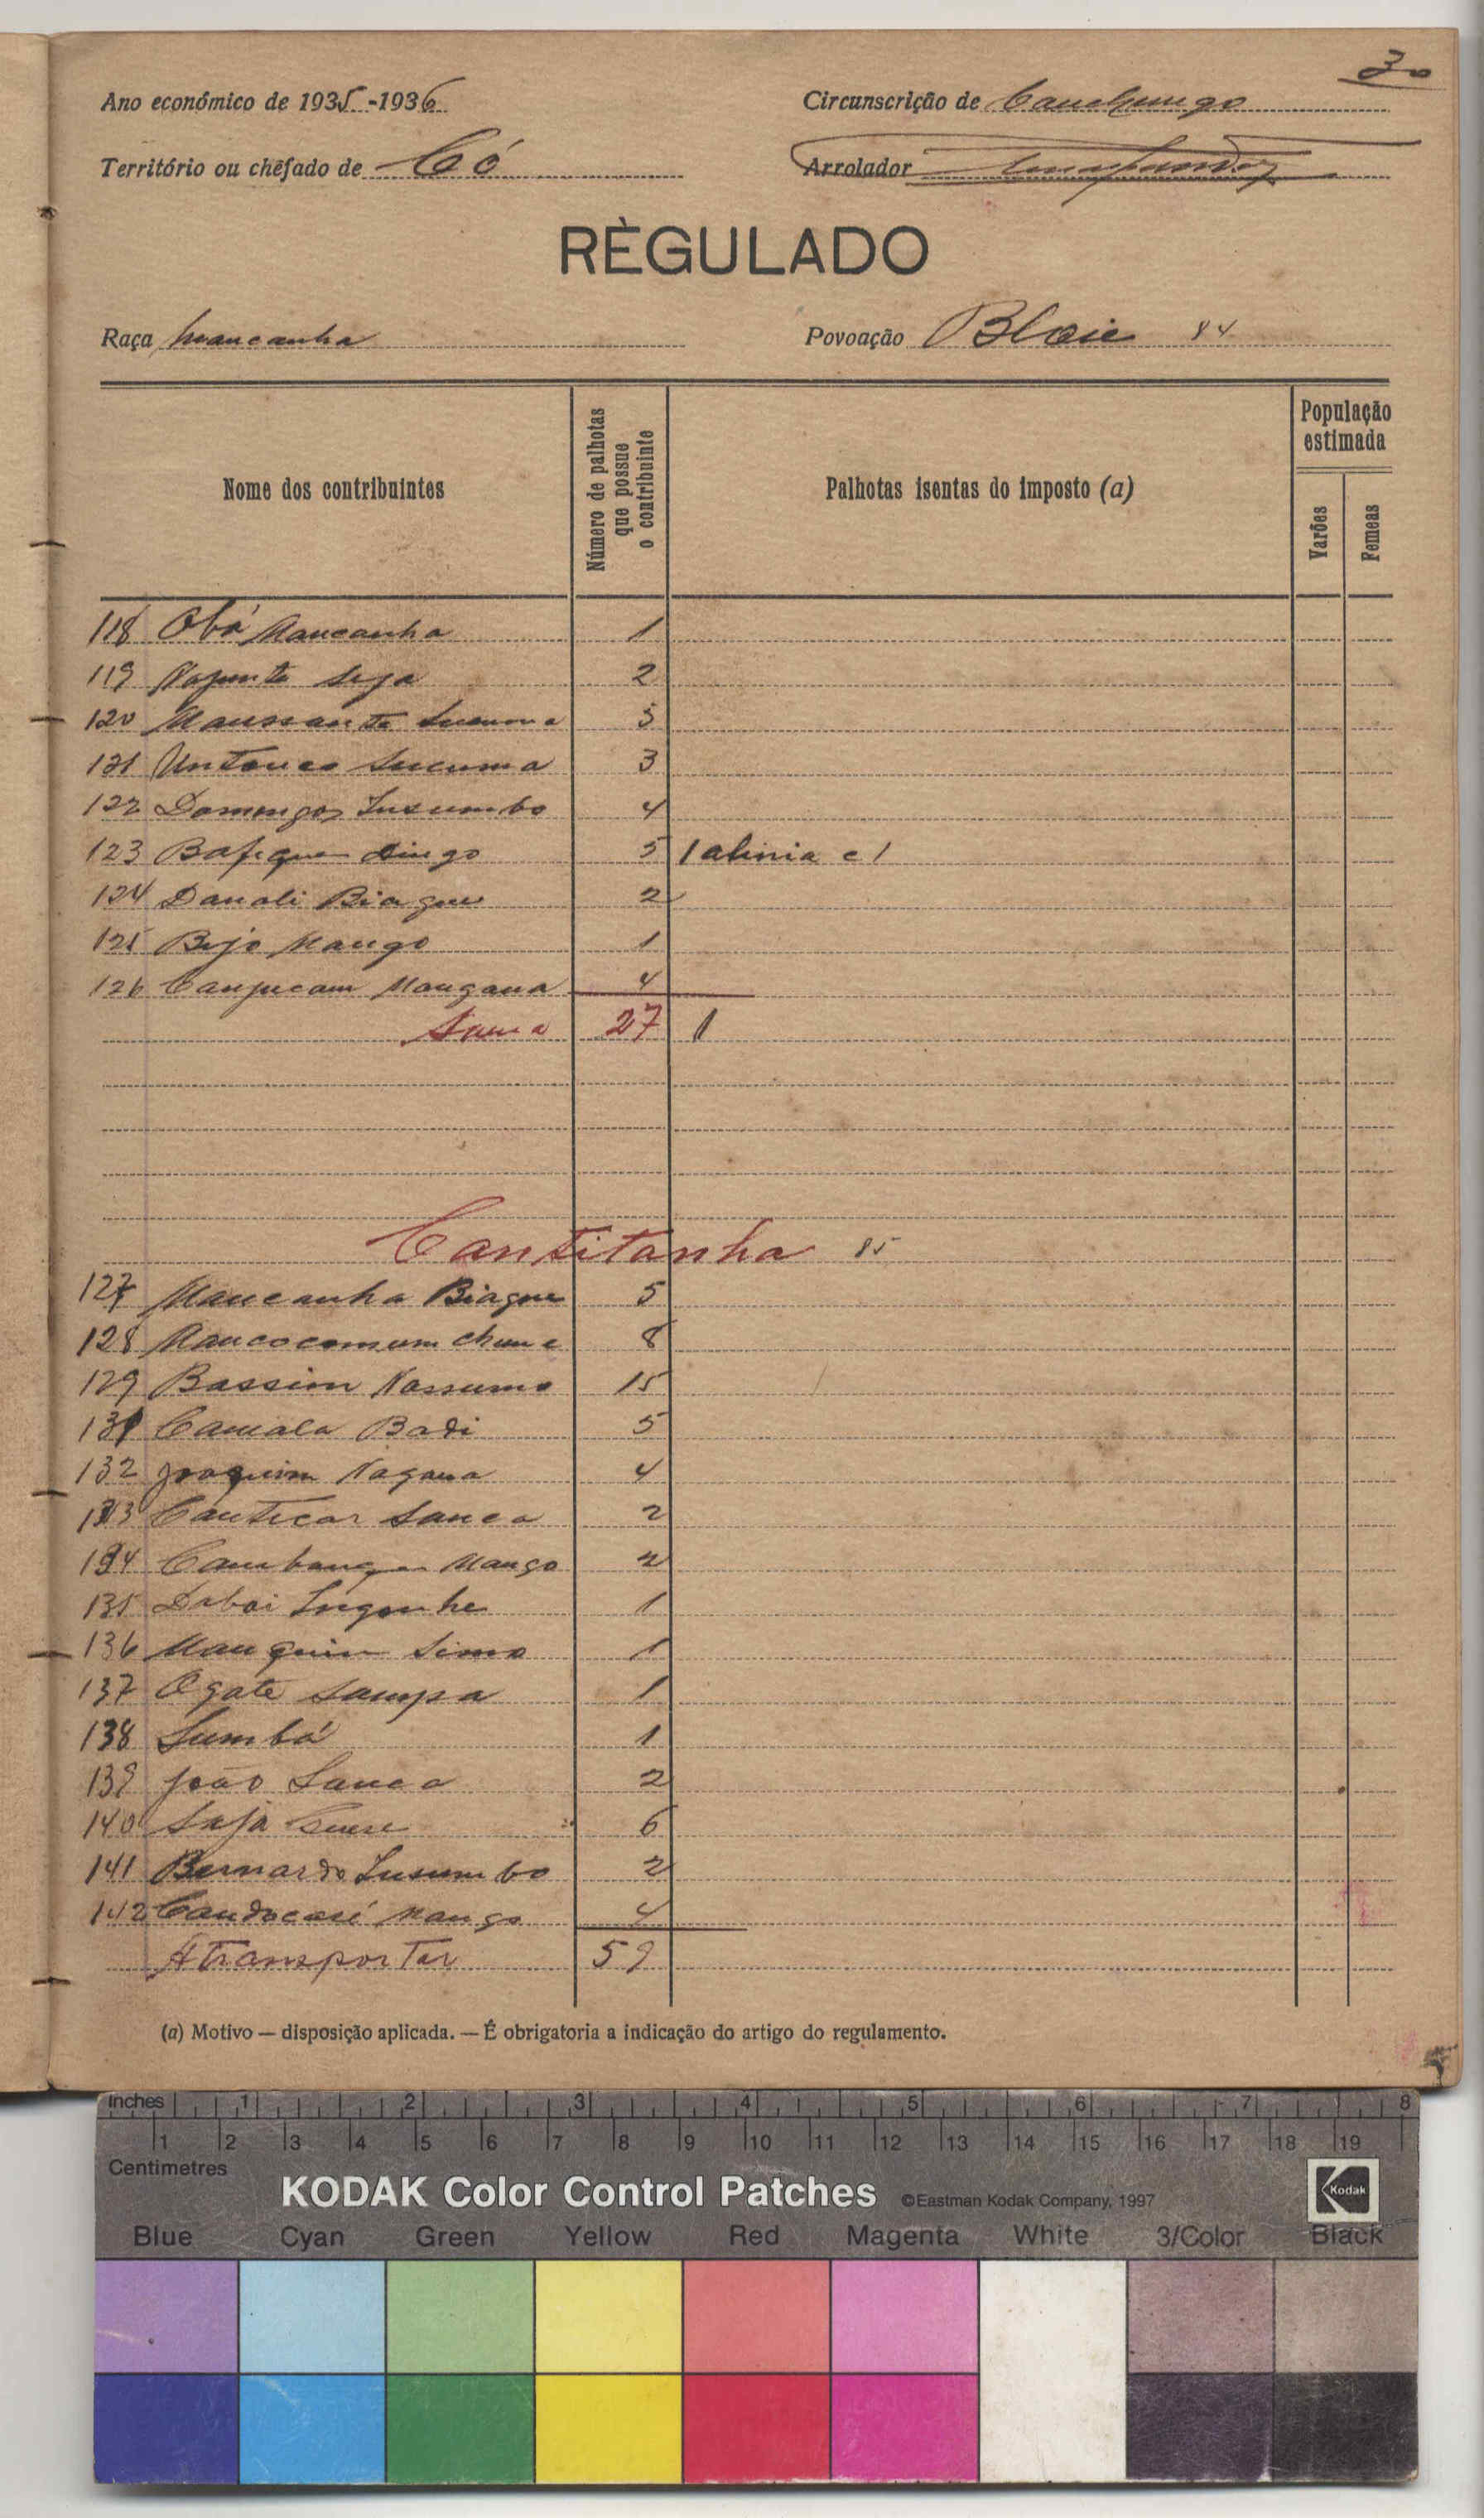 30
Ano económico de 1935-1936
Circunscrição de Canchungo
Território ou chêfado de Có
Arrolador
RÈGULADO
Raça Mancanha
Povoação Bloie 84
Nome dos contribuintes
Número de palhotas que possue o contribuinte
Palhotas isentas do imposto (a)
População estimada
Varões
Femeas
118 Obá Mancanha 1
119 Napunte Seja 2
120 Maussante Sucuma 5
121 Untonco Sucuma 3
122 Domingos Insumbo 4
123 Bafique Dingo 5 1 alinia c 1
124 Danoli Biague 2
125 Bijo Mango 1
126 Canjucam Mangana 4
Soma 27 1
Cantitanha 85
127 Mancanha Biague 5
128 Mancocomum Chune 8
129 Bassim Nassumo 15
131 Camala Badi 5
132 Joaquim Nagana 4
133 Canticar Sanca 2
134 Cambanque Mango 2
135 Daboi Ingonhe 1
136 Manquin Simo 1
137 Ogate Sampa 1
138 Sumbá 1
139 João Sanca 2
140 Saja 6
141 Bernardo Insumbo 2
142 Candocasé Mango 4
A transportar 59
(a) Motivo — disposição aplicada. — É obrigatoria a indicação do artigo do regulamento.
Inches 1 2 3 4 5 6 7 8
1 2 3 4 5 6 7 8 9 10 11 12 13 14 15 16 17 18 19
Centimetres
KODAK Color Control Patches ©Eastman Kodak Company, 1997 Kodak
Blue Cyan Green Yellow Red Magenta White 3/Color Black